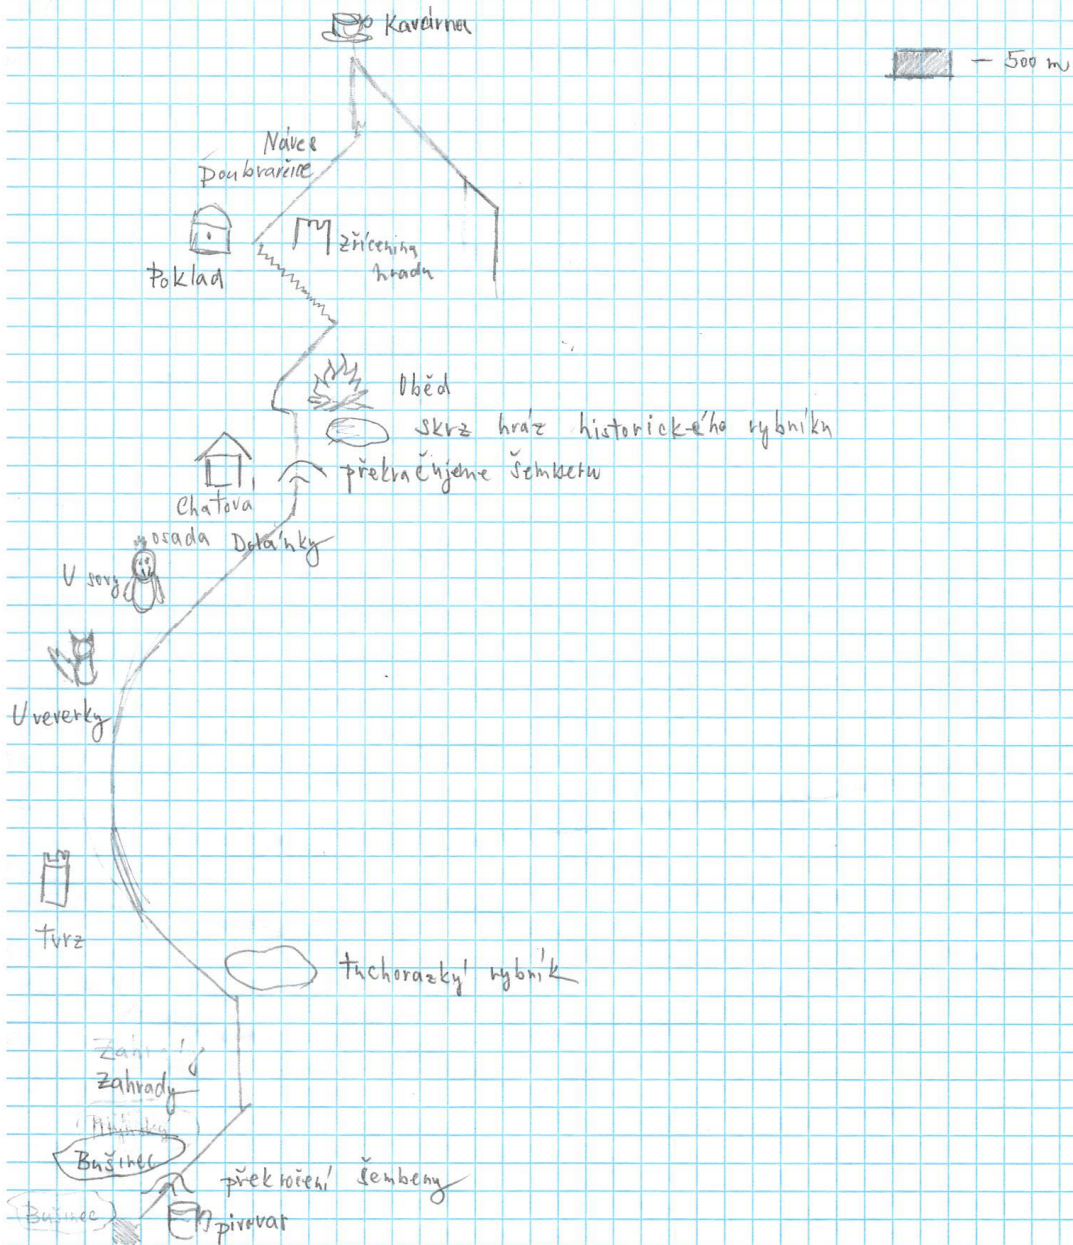 Kavárna
— 500 m
Náves
Doubravčice
Zřícenina
hradu
Poklad
Oběd
skrz hráz historického rybníku
překračujeme Šemberu
Chatova
osada Dolánky
U sovy
U veverky
Tvrz
Tuchorazký rybník
Zahrady
Bušinec
překročení Šembery
Bušinec
pivovar